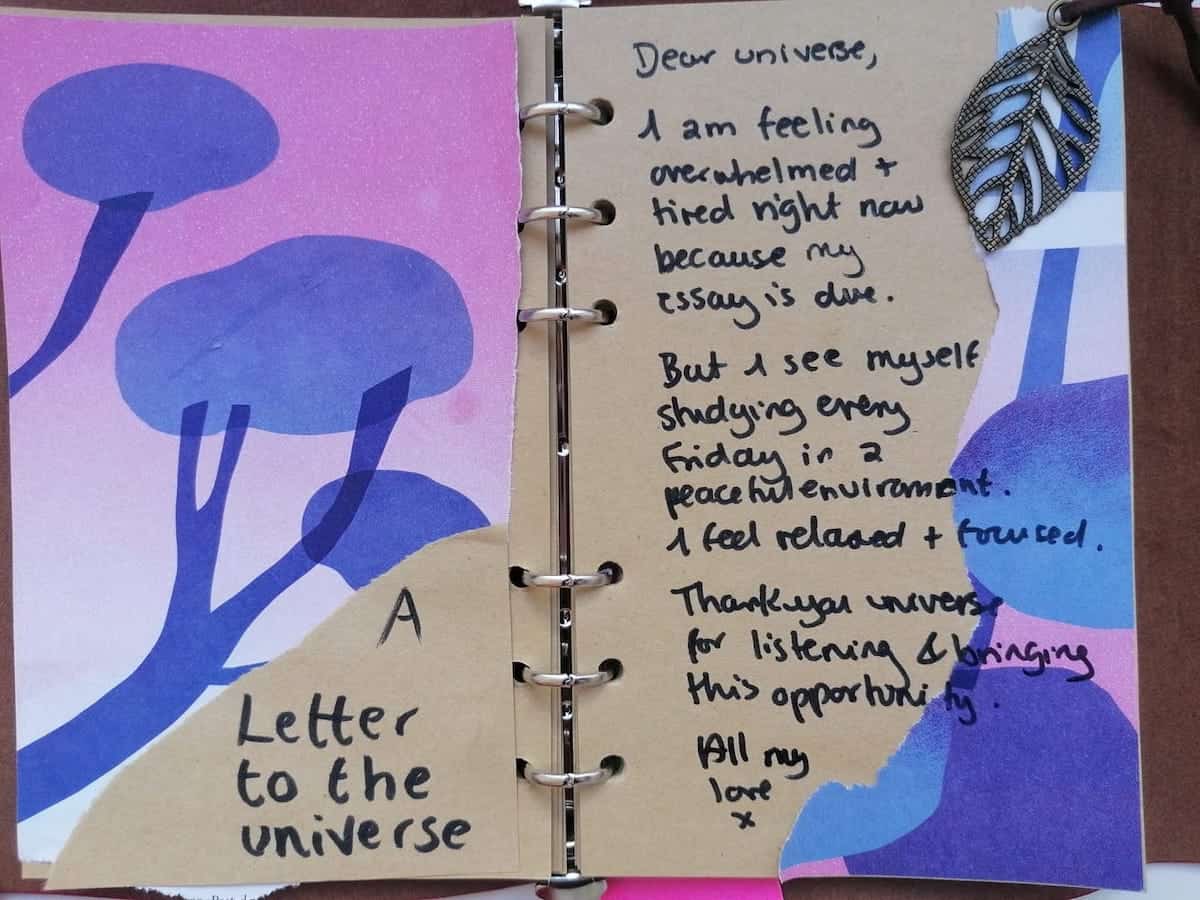 A
Letter
to the
universe
Dear universe,
I am feeling
overwhelmed +
tired right now
because my
essay is due.
But I see myself
studying every
Friday in a
peaceful environment.
I feel relaxed + focused.
Thank you universe
for listening & bringing
this opportunity.
All my
love
x